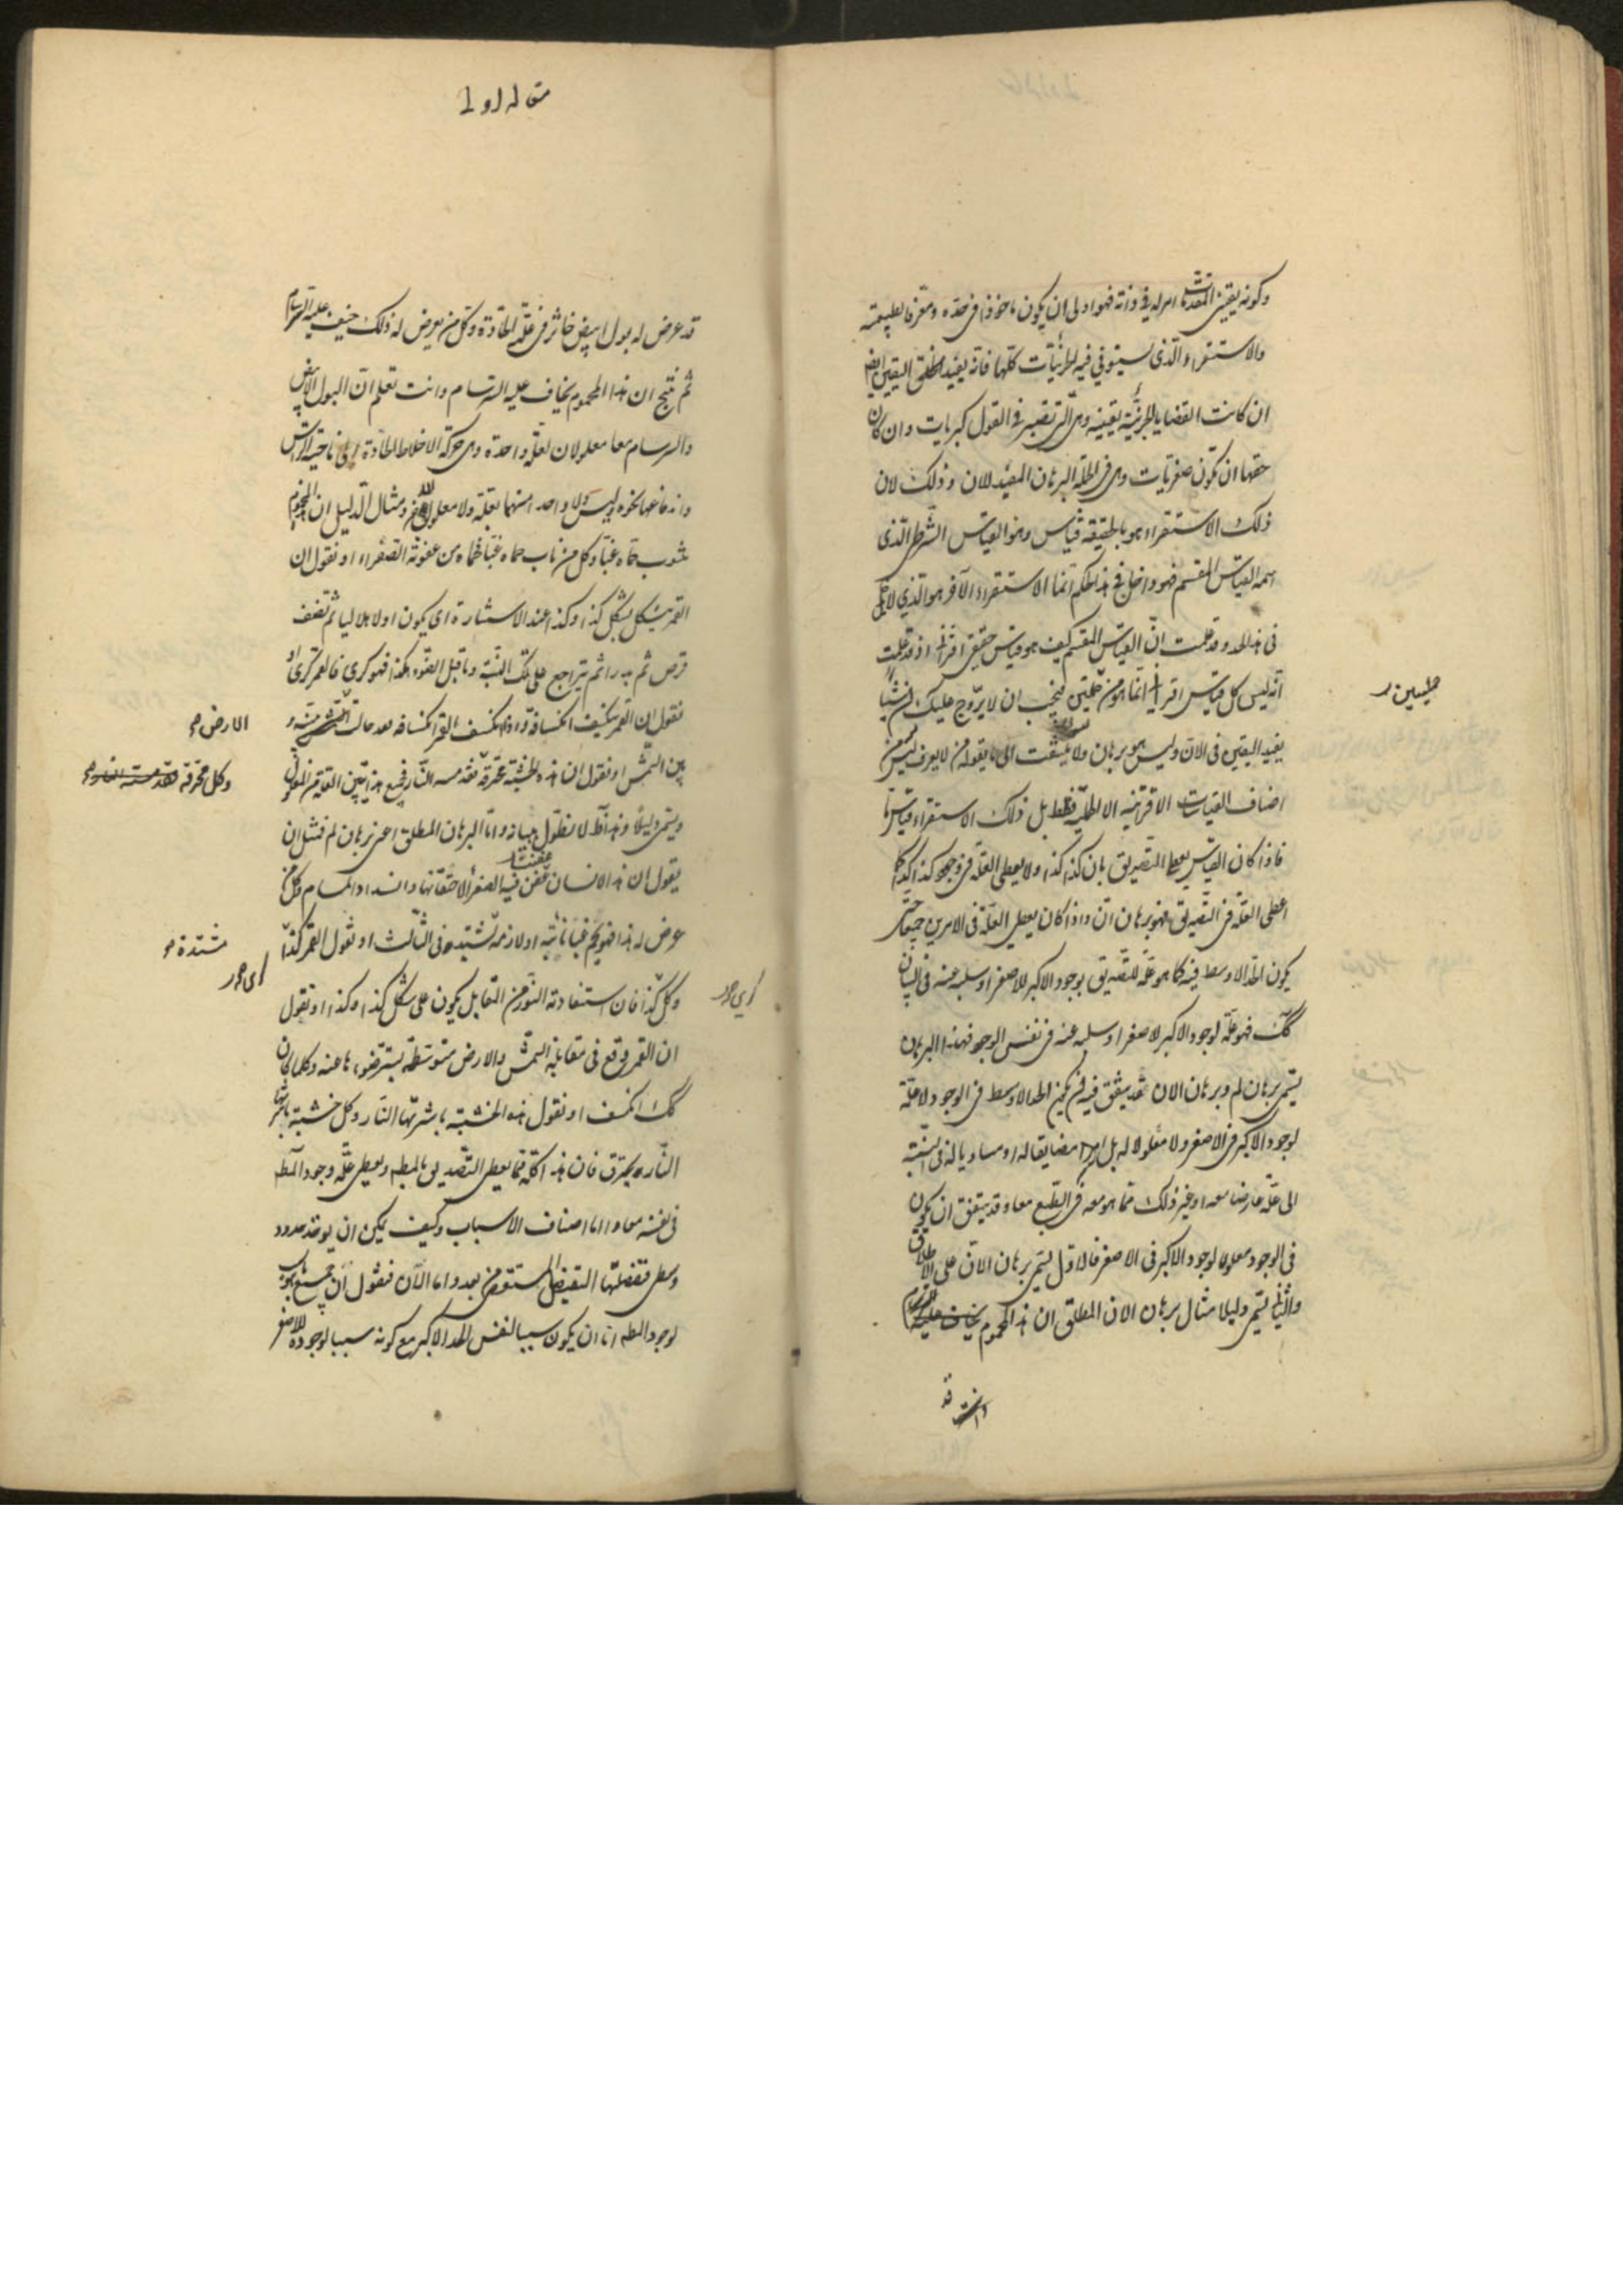 وكونه يقينى المقدمات امر له فى ذاته فهو اولى ان يكون ماخوذا فى حده ومعرفا لطبيعته
والاستقراء الذى يستوفى فيه الجزئيات كلها فانه يفيد اليقين ايضا
ان كانت القضايا الجزئية يقينية وهى التى تصير فى القول كبريات وان كان
حقها ان تكون صغريات وهى فى الجملة البرهان المفيد للان وذلك لان
ذلك الاستقراء هو بالحقيقة قياس وهو القياس الشرطى الذى
اسمه القياس المقسم فهو داخل فى هذا الحكم انما الاستقراء الآخر هو الذى لا يدخل
فى هذا الحد وقد علمت ان القياس المقسم كيف هو قياس حقيقى اقترانى اذ قد علمت
انه ليس كل قياس اقترانى انما هو من حمليتين فيجب ان لا يروج عليك ان شيئا
يفيد اليقين فى الان وليس هو ببرهان ولا يلتفت الى ما يقوله من لا يعرف من
اصناف القياسات الاقترانية الا الحملية فقط بل ذلك الاستقراء قياس ما
فاذا كان القياس يعطى التصديق بان كذا كذا ولا يعطى العلة فى وجود كذا كذا كما
اعطى العلة فى التصديق فهو برهان ان واذا كان يعطى العلة فى الامرين جميعا حتى
يكون الحد الاوسط فيه كما هو علة للتصديق بوجود الاكبر للاصغر او سلبه عنه فى البيان
كك فهو علة لوجود الاكبر للاصغر او سلبه عنه فى نفس الوجود فهذا البرهان
يسمى برهان لم وبرهان الان فقد يتفق فيه ان يكون الحد الاوسط فى الوجود لا علة
لوجود الاكبر فى الاصغر ولا معلولا له بل امرا مضايفا له او مساويا له فى النسبة
الى علة عارضا معه او غير ذلك مما هو معه فى الطبع معا وقد يتفق ان يكون
فى الوجود معلولا لوجود الاكبر فى الاصغر فالاول يسمى برهان الان على الاطلاق
والثانى يسمى دليلا مثال برهان الان المطلق ان هذا المحموم
قد
مقاله اولى
قد عرض له بول ابيض خاثر فى علته الحادة وكل من يعرض له ذلك خيف عليه السرسام
ثم ينتج ان هذا المحموم يخاف عليه السرسام وانت تعلم ان البول الابيض
والسرسام معا معلولان لعلة واحدة وهى حركة الاخلاط الحادة الى ناحية الراس
واندفاعها نحوه وليس ولا واحد منهما بعلة ولا معلول للاخر ومثال الدليل ان المحموم
تنوب حماه غبا وكل من ناب حماه غبا فحماه من عفونة الصفراء او نقول ان
القمر يتشكل بشكل كذا وكذا عند الاستنارة اى يكون اولا هلاليا ثم نصف
قرص ثم بدرا ثم يتراجع على تلك النسبة وما قبل الضوء هكذا فهو كرى فالقمر كرى او
نقول ان القمر ينكسف انكسافه واذا انكسف القمر انكسافه فقد حالت بينه و
بين الشمس او نقول ان هذه الخشبة محترقة فقد مسه النار فجميع هذا يبين العلة من المعلول
ويسمى دليلا ونواقظ لا نطول ببيانه واما البرهان المطلق اعنى برهان لم فمثل ان
يقول ان هذا الانسان عفن فيه الصفراء لاحتقانها وانسداد المسام وكل من
عرض له هذا فهو يحم غبا نائبة او لازمة تشتد فى الثالث او نقول القمر كذا
وكل كذا فان استفادته النور من المقابل يكون على شكل كذا وكذا او نقول
ان القمر وقع فى مقابلة الشمس والارض متوسطة يستر ضوءها عنه وكلما كان
كك انكسف او نقول هذه الخشبة باشرتها النار وكل خشبة باشرتها
النار يحترق فان هذا كله مما يعطى التصديق بالمط ويعطى علة وجود المط
فى نفسه معا واما اصناف الاسباب وكيف يمكن ان يوخذ حدود
وسطى فتفصلها التفصيل المستقصى من بعد واما الآن فنقول ان جميع
لوجود المط اما ان يكون سببا لنفس الحد الاكبر مع كونه سببا لوجوده للاصغر
حمليين
الارض
وكل محرقة
مشتدة
كرى
كرى